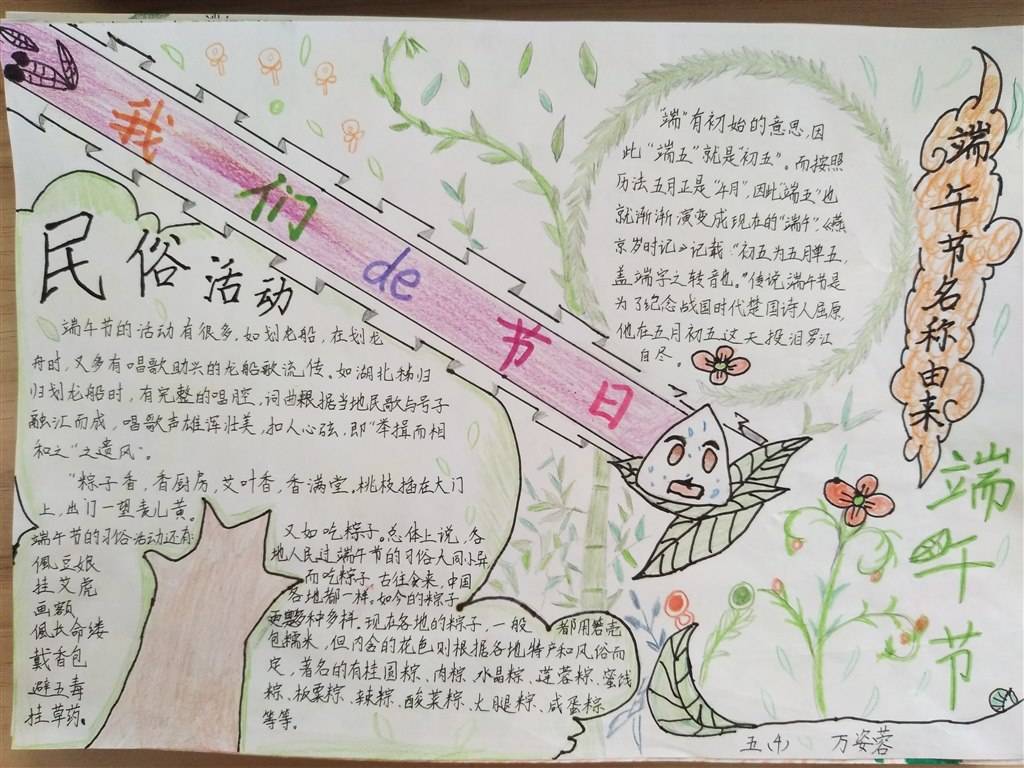 我们de节日
民俗活动
端午节的活动有很多，如划龙船，在划龙
舟时，又多有唱歌助兴的龙船歌流传。如湖北秭归
归划龙船时，有完整的唱腔，词曲根据当地民歌与号子
融汇而成，唱歌声雄浑壮美，扣人心弦，即“举揖而相
和之”之遗风。
“粽子香，香厨房，艾叶香，香满堂，桃枝插在大门
上，出门一望麦儿黄。
端午节的习俗活动还有
佩豆娘
挂艾虎
画额
佩长命缕
戴香包
避五毒
挂草药。
又如吃粽子。总体上说，各
地人民过端午节的习俗大同小异
而吃粽子，古往今来，中国
各地都一样。如今的粽子
更多种多样，现在各地的粽子，一般 都用箬壳
包糯米，但内含的花色则根据各地特产和风俗而
定，著名的有桂圆粽、肉粽、水晶粽、莲蓉粽、蜜饯
粽、板栗粽、辣粽、酸菜粽、火腿粽、咸蛋粽
等等。
“端”有初始的意思，因
此“端五”就是“初五”。而按照
历法五月正是“午月”，因此“端五”也
就渐渐演变成现在的“端午”《燕
京岁时记》记载：“初五为五月单五，
盖端字之转音也。”传说端午节是
为了纪念战国时代楚国诗人屈原，
他在五月初五这天投汨罗江
自尽。
端午节名称由来
端午节
五(4) 万姿蓉